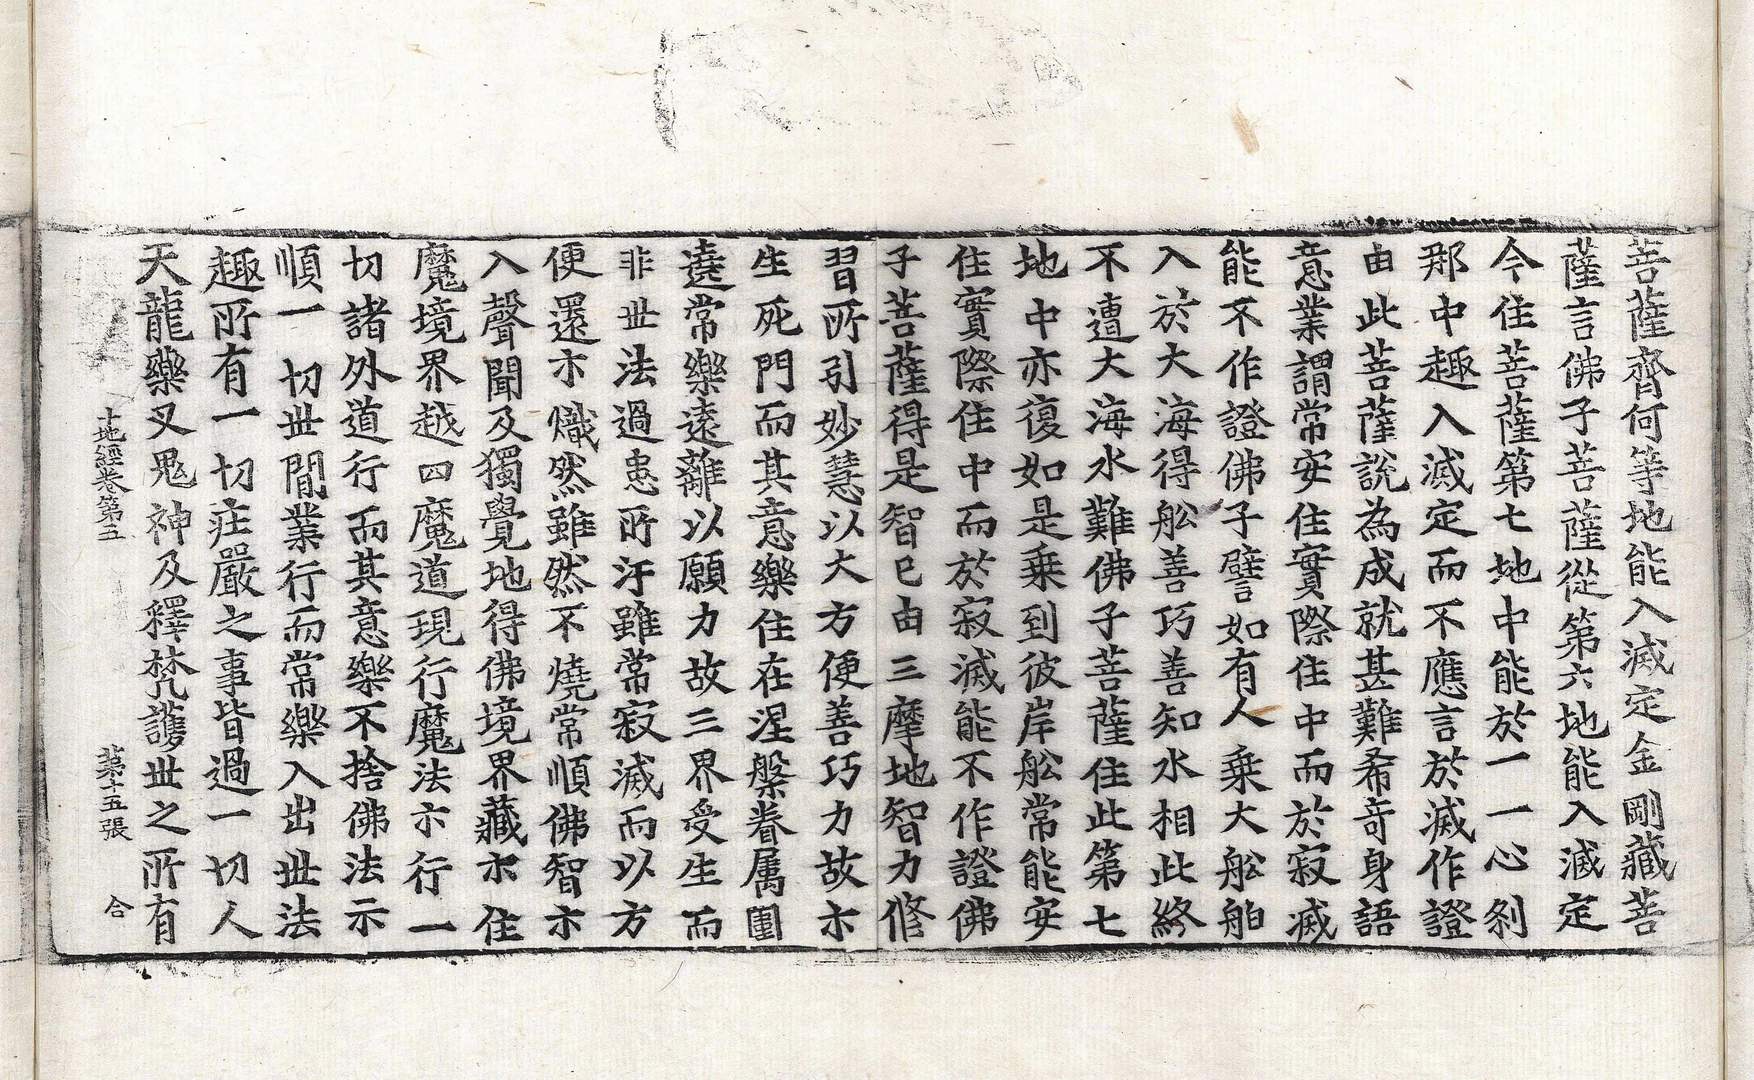 菩薩齊何等地能入滅定金剛藏菩
薩言佛子菩薩從第六地能入滅定
今住菩薩第七地中能於一一心剎
那中趣入滅定而不應言於滅作證
由此菩薩說為成就甚難希奇身語
意業謂常安住實際住中而於寂滅
能不作證佛子譬如有人乗大舩舶
入於大海得舩善巧善知水相此終
不遭大海水難佛子菩薩住此第七
地中亦復如是乗到彼岸舩常能安
住實際住中而於寂滅能不作證佛
子菩薩得是智已由三摩地智力修
習所引妙慧以大方便善巧力故亦
生死門而其意樂住在涅槃眷属圍
遶常樂遠離以願力故三界受生而
非世法過患所汙雖常寂滅而以方
便還亦熾然雖然不燒常順佛智亦
入聲聞及獨覺地得佛境界藏亦住
魔境界越四魔道現行魔法亦行一
切諸外道行而其意樂不捨佛法示
順一切世間業行而常樂入出世法
趣所有一切莊嚴之事皆過一切人
天龍藥叉鬼神及釋梵護世之所有
十地經卷第五 第十五張 合